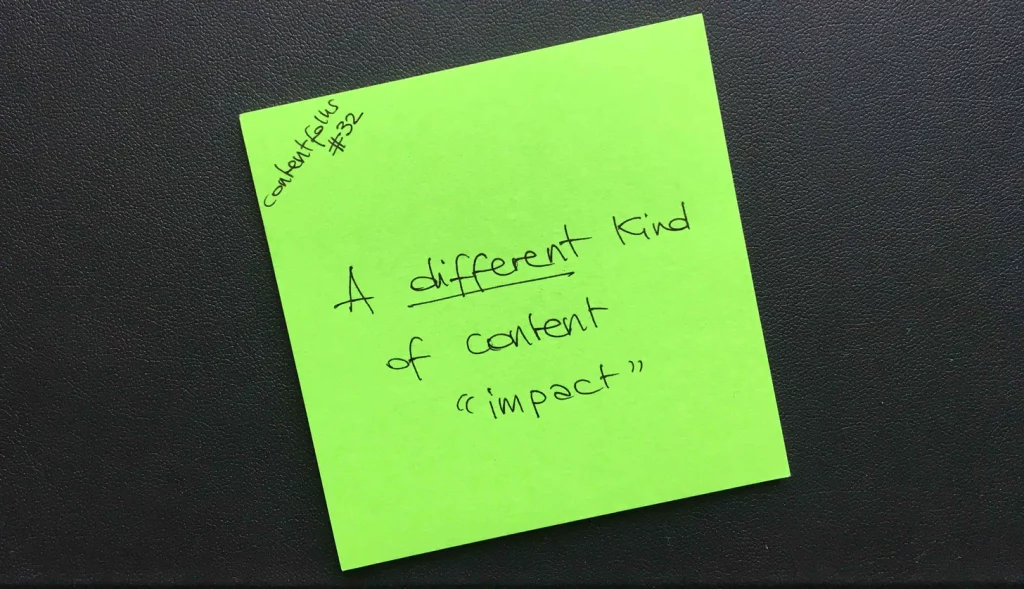 contentfolks
#32
A different kind
of content
“impact”